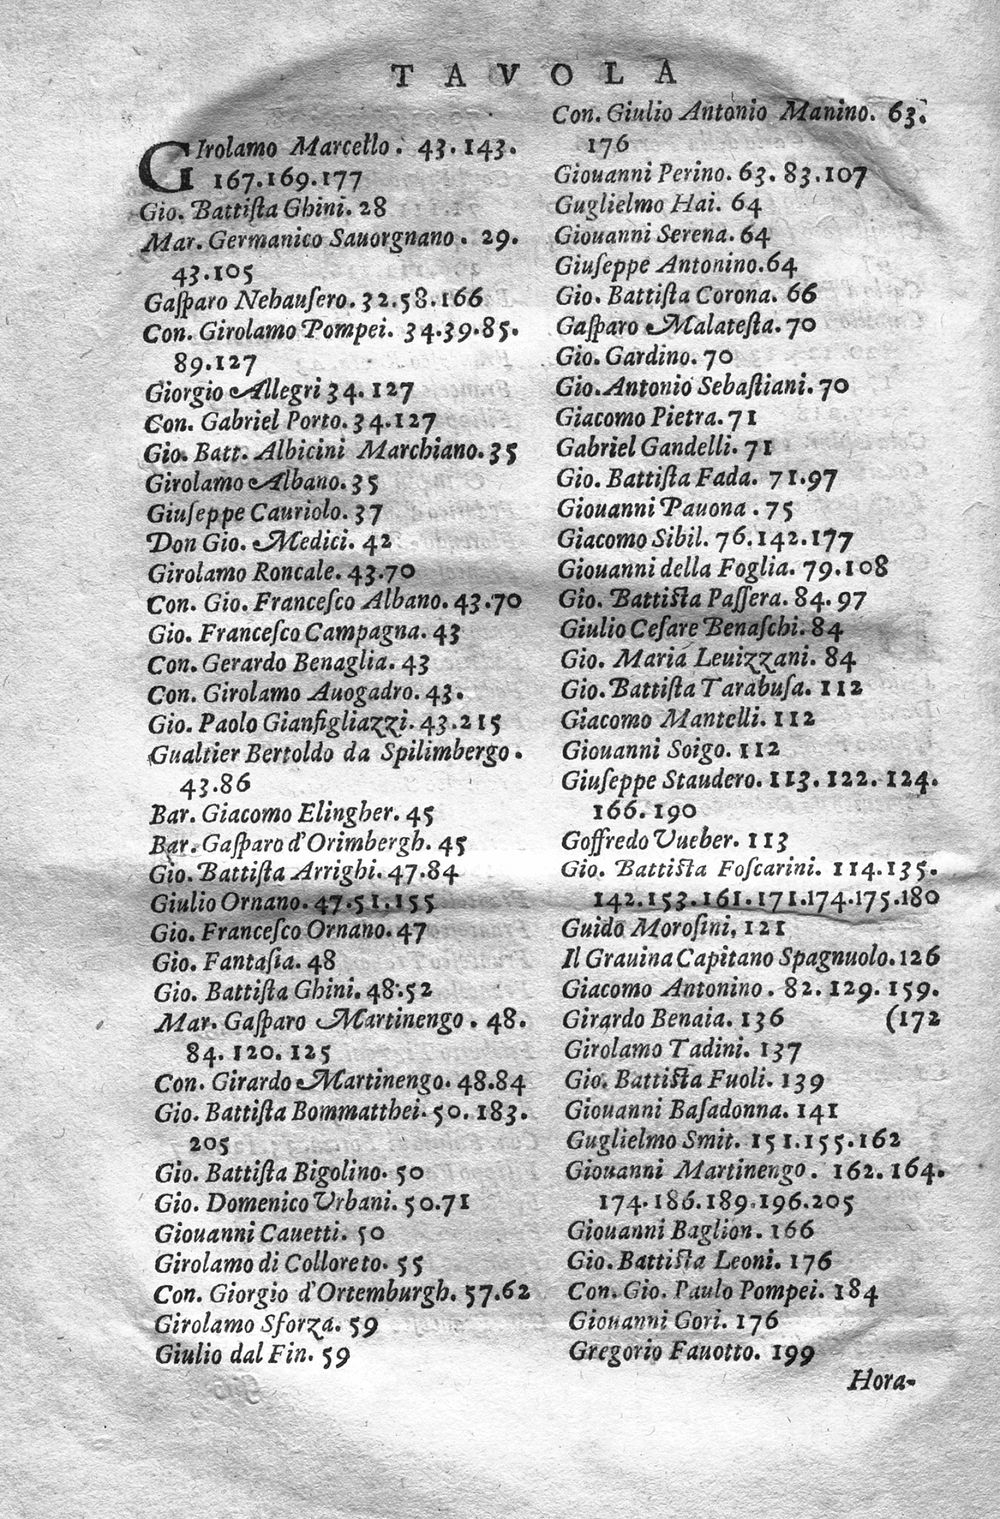 TAVOLA
GIrolamo Marcello. 43. 143.
167.169.177
Gio. Battiſta Ghini. 28
Mar. Germanico Sauorgnano. 29.
43.105
Gaſparo Nehauſero. 32.58.166
Con. Girolamo Pompei. 34.39.85.
89.127
Giorgio Allegri 34. 127
Con. Gabriel Porto. 34.127
Gio. Batt. Albicini Marchiano. 35
Girolamo Albano. 35
Giuſeppe Cauriolo. 37
Don Gio. Medici. 42
Girolamo Roncale. 43.70
Con. Gio. Franceſco Albano. 43.70
Gio. Franceſco Campagna. 43
Con. Gerardo Benaglia. 43
Con. Girolamo Auogadro. 43.
Gio. Paolo Gianfigliazzi. 43.215
Gualtier Bertoldo da Spilimbergo.
43.86
Bar. Giacomo Elingher. 45
Bar. Gaſparo d'Orimbergh. 45
Gio. Battiſta Arrighi. 47.84
Giulio Ornano. 47.51.155
Gio. Franceſco Ornano. 47
Gio. Fantaſia. 48
Gio. Battiſta Ghini. 48.52
Mar. Gaſparo Martinengo. 48.
84. 120. 125
Con. Girardo Martinengo. 48.84
Gio. Battiſta Bommatthei. 50. 183.
205
Gio. Battiſta Bigolino. 50
Gio. Domenico Urbani. 50.71
Giouanni Cauetti. 50
Girolamo di Colloreto. 55
Con. Giorgio d'Ortemburgh. 57.62
Girolamo Sforza. 59
Giulio dal Fin. 59
Con. Giulio Antonio Manino. 63.
176
Giouanni Perino. 63. 83.107
Guglielmo Hai. 64
Giouanni Serena. 64
Giuſeppe Antonino. 64
Gio. Battiſta Corona. 66
Gaſparo Malateſta. 70
Gio. Gardino. 70
Gio. Antonio Sebaſtiani. 70
Giacomo Pietra. 71
Gabriel Gandelli. 71
Gio. Battiſta Fada. 71.97
Giouanni Pauona. 75
Giacomo Sibil. 76.142.177
Giouanni della Foglia. 79.108
Gio. Battiſta Paſſera. 84.97
Giulio Ceſare Benaſchi. 84
Gio. Maria Leuizzani. 84
Gio. Battiſta Tarabuſa. 112
Giacomo Mantelli. 112
Giouanni Soigo. 112
Giuſeppe Staudero. 113. 122. 124.
166. 190
Goffredo Vueber. 113
Gio. Battiſta Foſcarini. 114.135.
142.153.161.171.174.175.180
Guido Moroſini. 121
Il Grauina Capitano Spagnuolo. 126
Giacomo Antonino. 82. 129. 159.
Girardo Benaia. 136 (172
Girolamo Tadini. 137
Gio. Battiſta Fuoli. 139
Giouanni Baſadonna. 141
Guglielmo Smit. 151.155.162
Giouanni Martinengo. 162. 164.
174.186.189.196.205
Giouanni Baglion. 166
Gio. Battiſta Leoni. 176
Con. Gio. Paulo Pompei. 184
Giouanni Gori. 176
Gregorio Fauotto. 199
Hora-